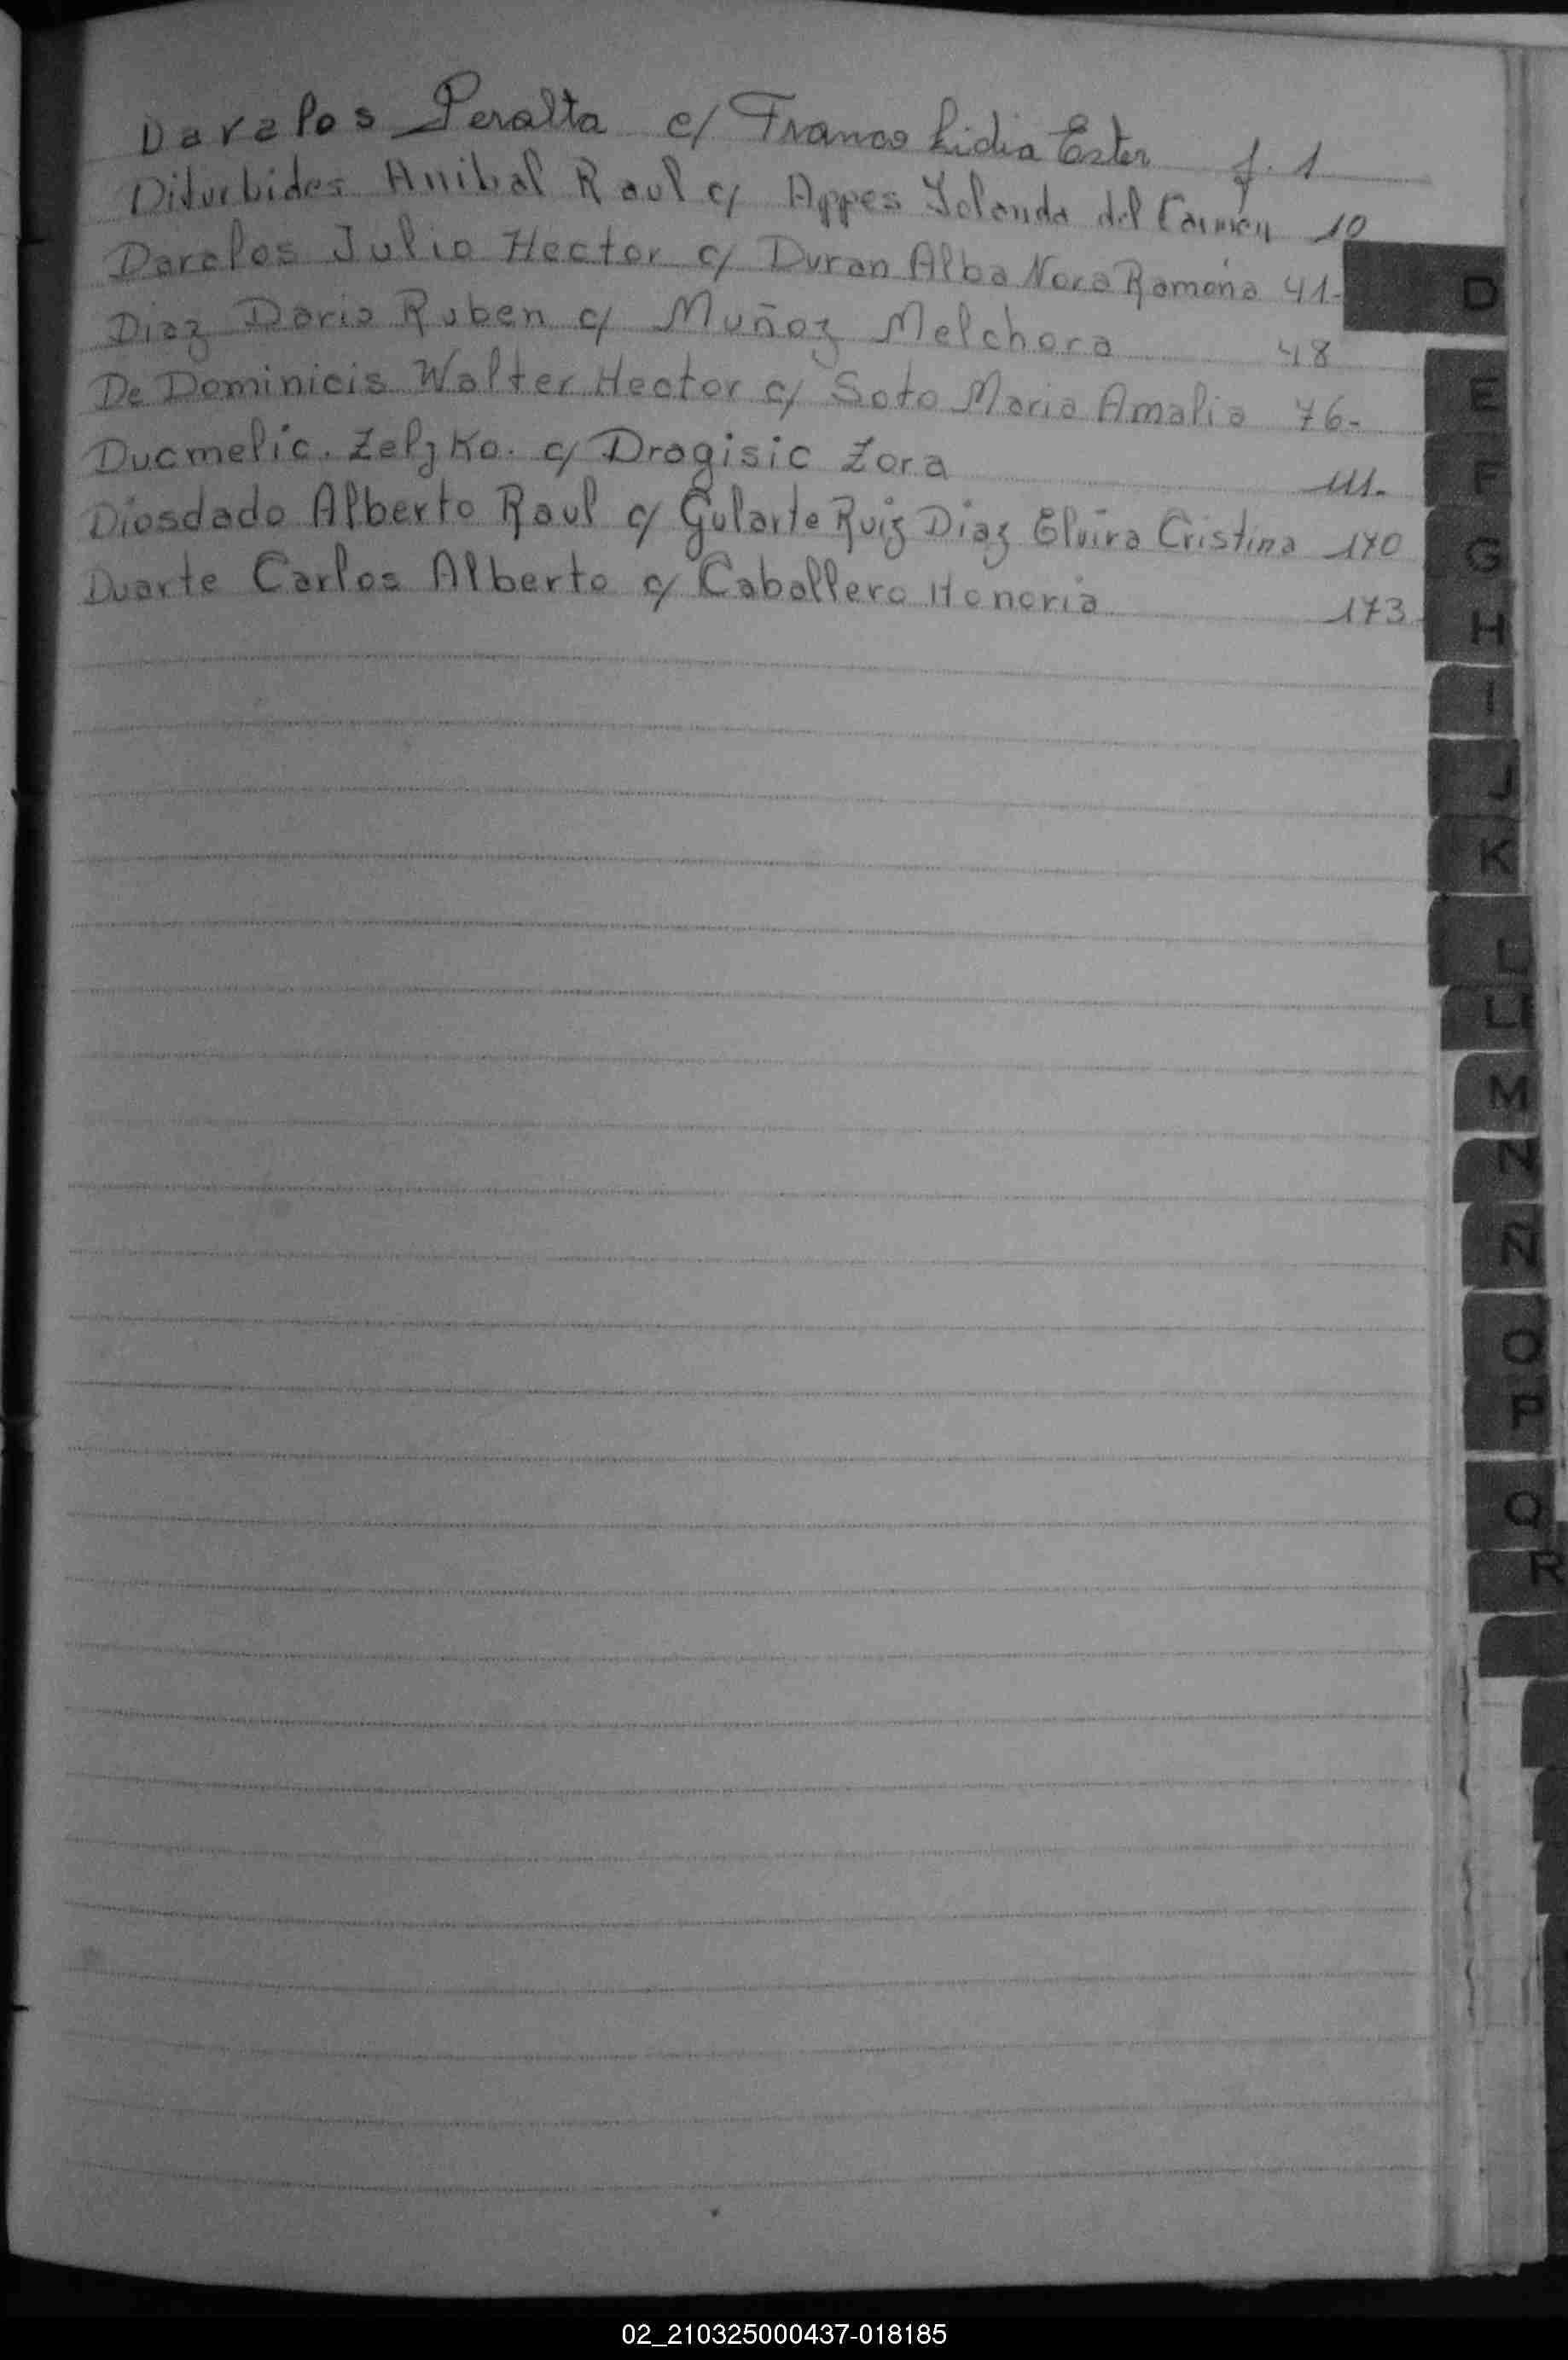 Davalos Peralta c/ Franco Lidia Ester f. 1
Diturbides Anibal Raul c/ Appes Iolanda del Carmen 10
Davalos Julio Hector c/ Duran Alba Nora Ramona 41-
Diaz Dario Ruben c/ Muñoz Melchora 48
De Dominicis Walter Hector c/ Soto Maria Amalia 76-
Ducmelic. Zeljko. c/ Dragisic Zora 111-
Diosdado Alberto Raul c/ Gularte Ruiz Diaz Elvira Cristina 170
Duarte Carlos Alberto c/ Caballero Honoria 173-
D
E
F
G
H
I
J
K
L
LL
M
N
Ñ
O
P
Q
R
02_210325000437-018185